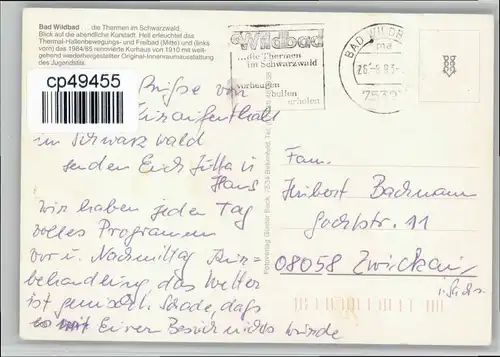 Bad Wildbad ... die Thermen im Schwarzwald.
Blick auf die abendliche Kurstadt. Hell erleuchtet das
Thermal-Hallenbewegungs- und Freibad (Mitte) und (links
vorn) das 1984/85 renovierte Kurhaus von 1910 mit weit-
gehend wiederhergestellter Original-Innenraumausstattung
des Jugendstils.
cp49455
Wildbad
...die Thermen
im Schwarzwald
vorbeugen
heilen
erholen
BAD WILDB
26.-8.93-
Grüße vom
Kuraufenthalt
im Schwarzwald
senden Euch Jutta u
Hans
Wir haben jeden Tag
volles Programm
vor u. Nachmittag Kur=
behandlung, das Wetter
ist gemischt. Schade, daß
Eurer Besuch nichts würde
Fam.
Heribert Bachmann
08058 Zwickau